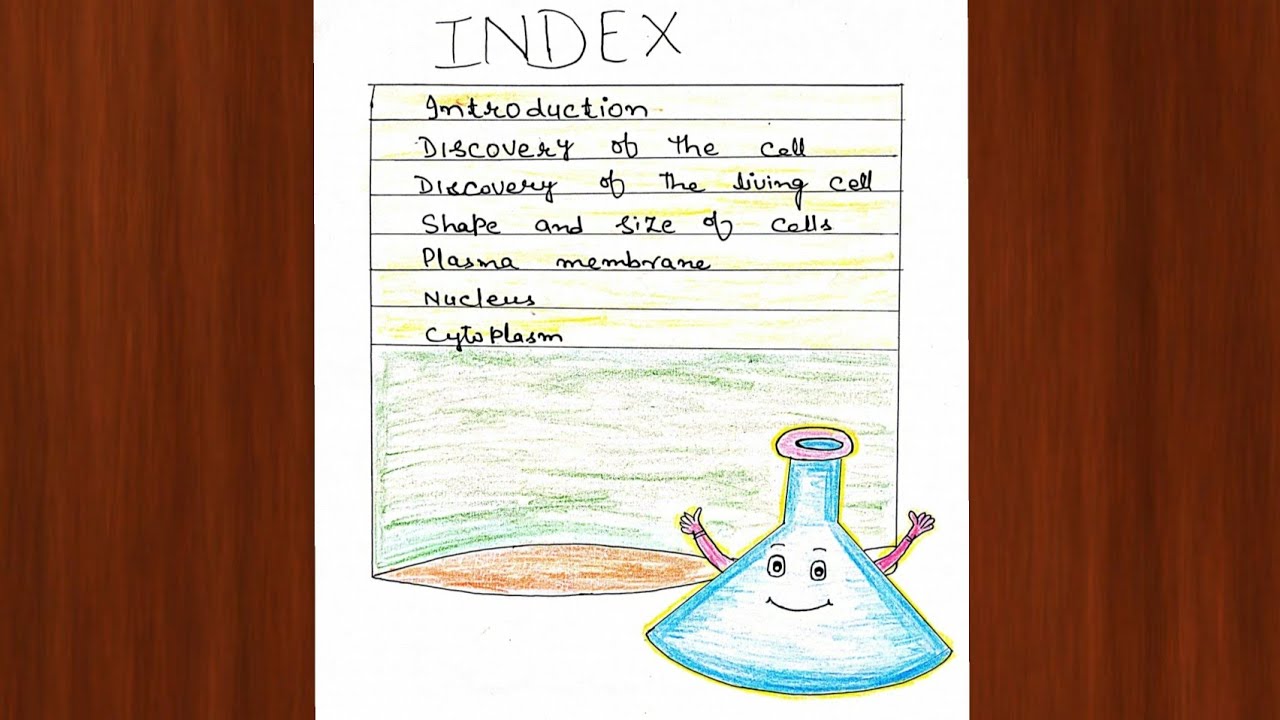 INDEX
Introduction
Discovery of the cell
Discovery of the living cell
Shape and size of cells
Plasma membrane
Nucleus
Cytoplasm